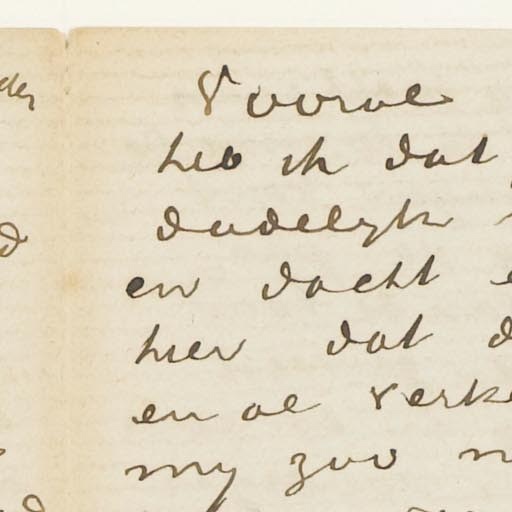 Vooral
heb ik dat
dadelyk
en dacht
hier dat d
en al verke
my zoo n